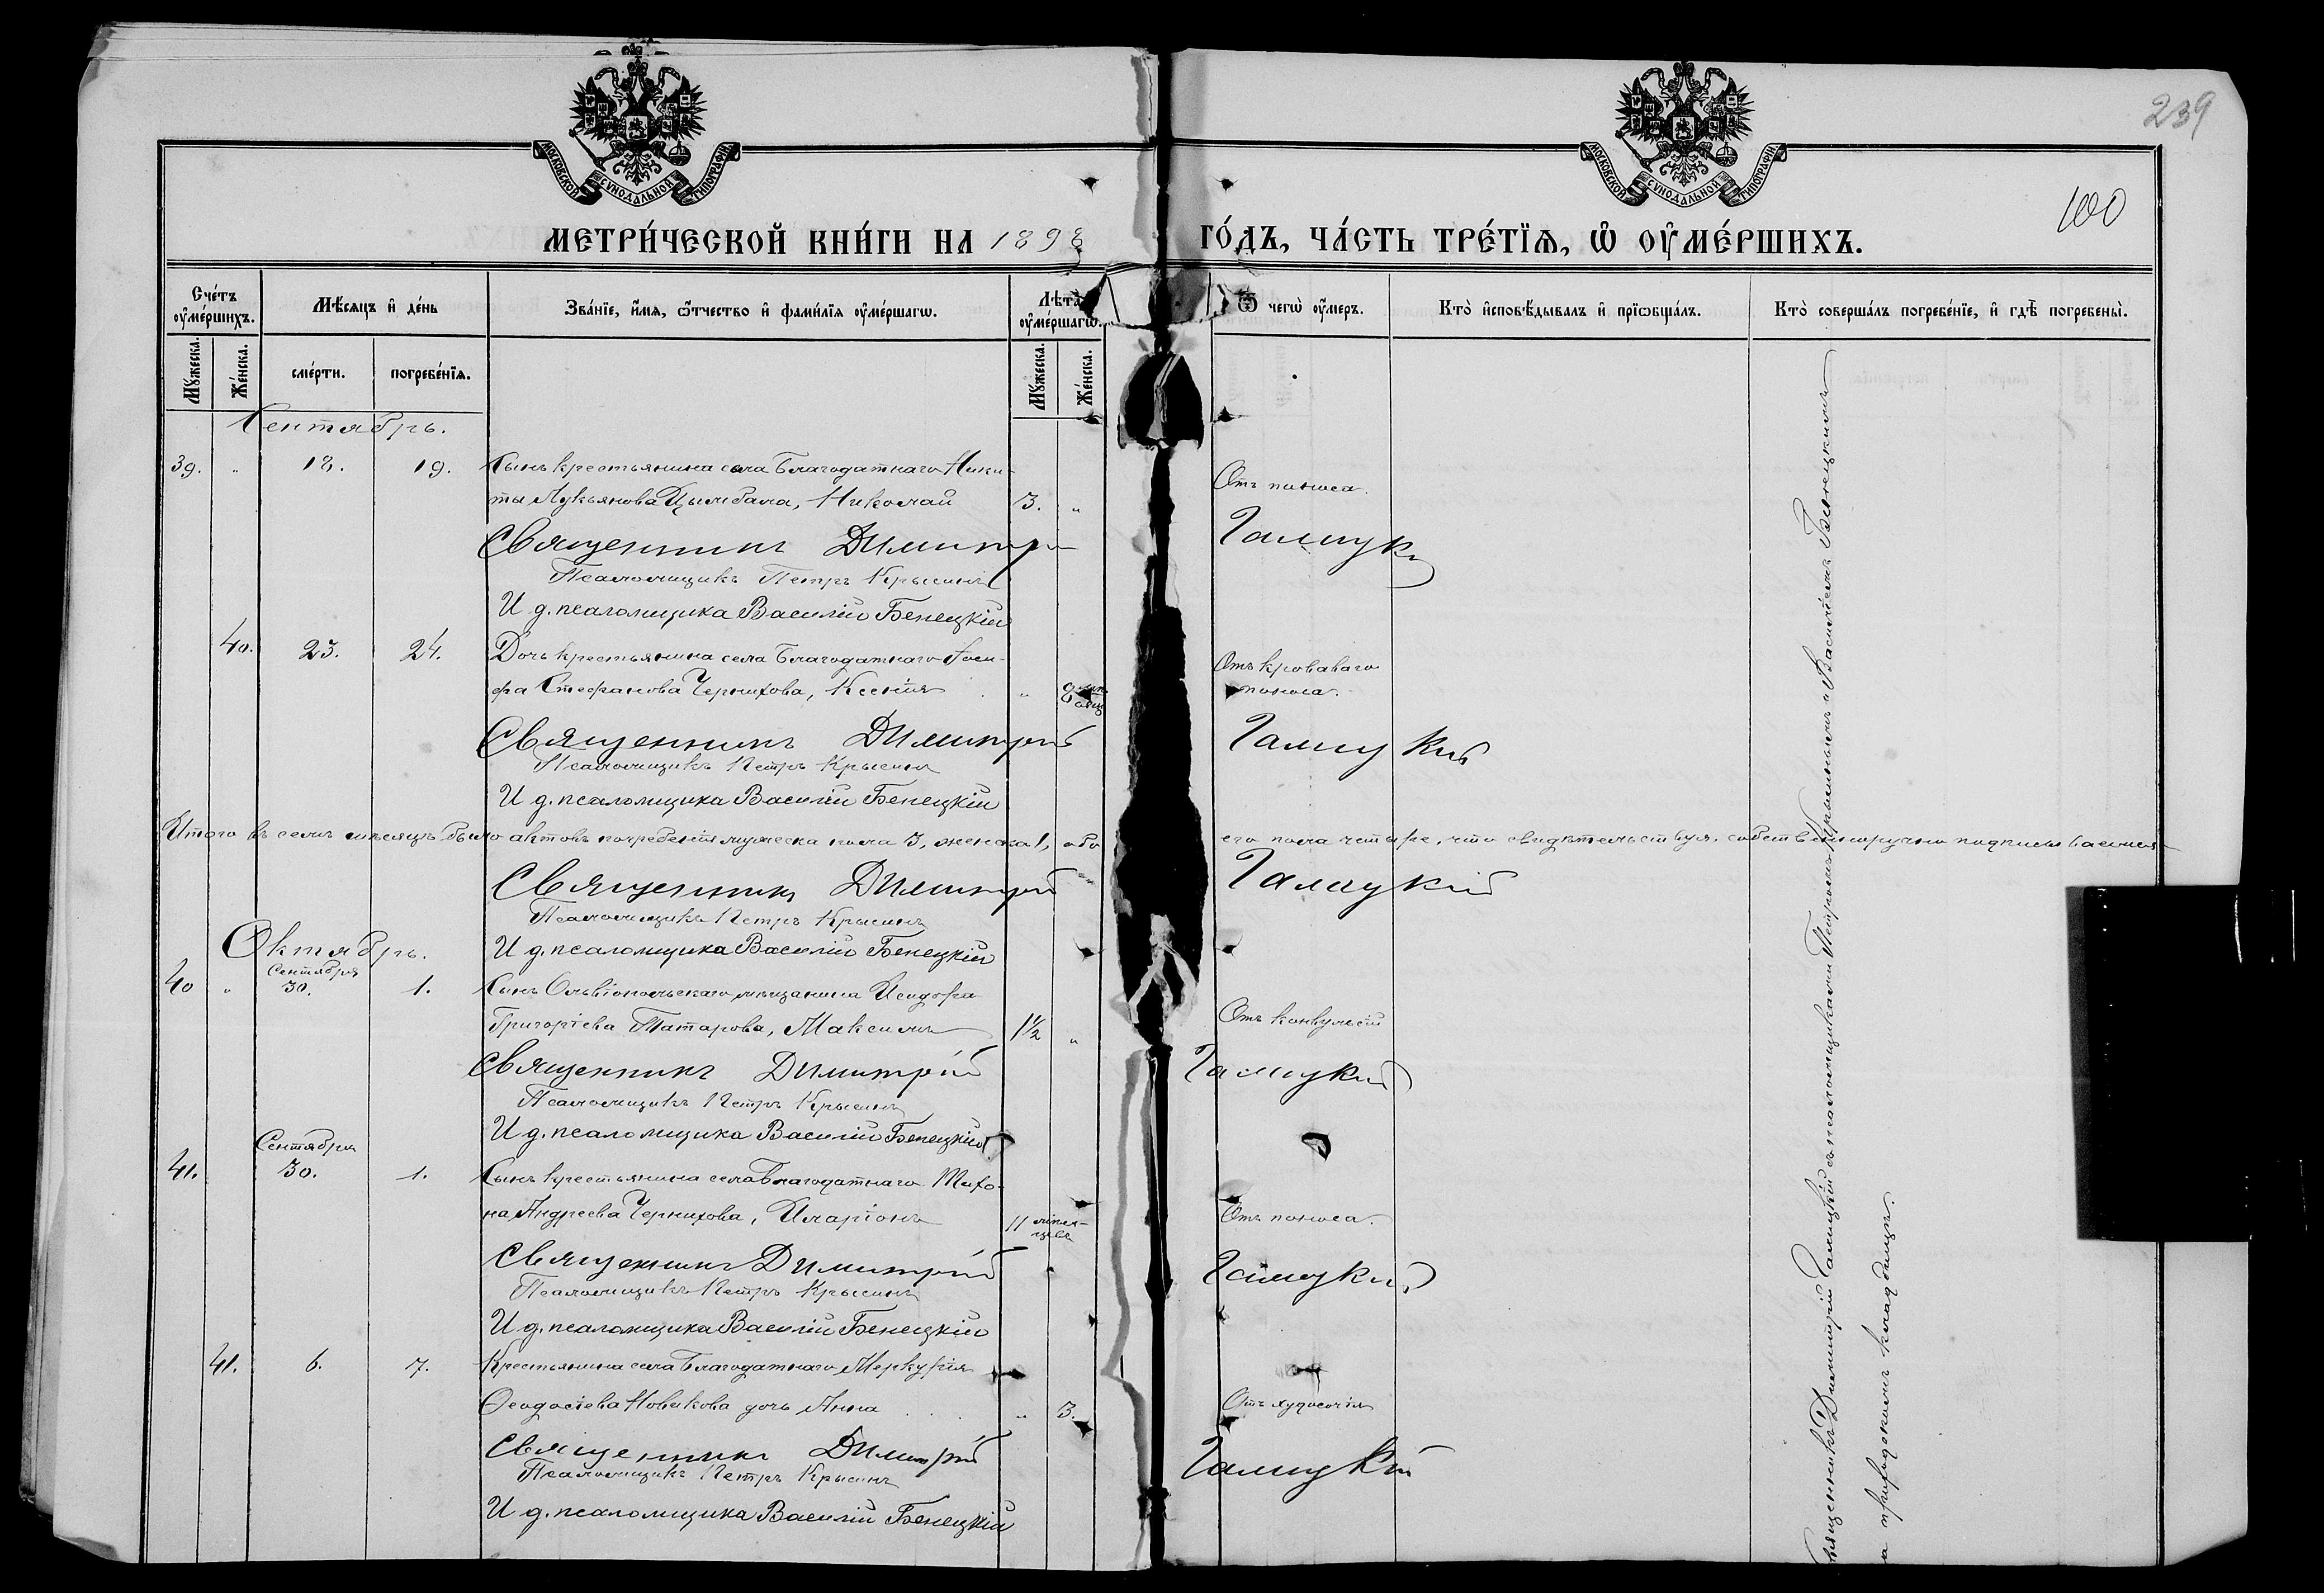 239
МОСКОВСКОЙ СѴНОДАЛЬНОЙ ТИПОГРАФІИ
МОСКОВСКОЙ СѴНОДАЛЬНОЙ ТИПОГРАФІИ
100
МЕТРИ́ЧЕСКОЙ КНИ́ГИ НА 1898 ГО́ДЪ, ЧА́СТЬ ТРЕ́ТЇѦ, Ѿ ОУ҆МЕ́РШИХЪ.
Сче́тъ оу҆ме́ршихъ.
Мѣ́сяцъ и҆ де́нь
Зва́нїе, и҆́мя, ѻ҆́тчество и҆ фами́лїя оу҆ме́ршагѡ.
Лѣ́та оу҆ме́ршагѡ.
Ѿ чегѡ̀ оу҆́меръ.
Кто̀ и҆сповѣ́дывалъ и҆ прїѻбща́лъ.
Кто̀ соверша́лъ погребе́нїе, и҆ гдѣ̀ погребены̀.
Мꙋ́жеска.
Же́нска.
сме́рти.
погребе́нїя.
Мꙋ́жеска.
Же́нска.
Сентябрь.
39. „ 18. 19. Сынъ крестьянина села Благодатнаго Ники-
ты Лукьянова Цымбала, Николай 3. „ Отъ поноса.
Священникъ Димитрій Галицкій
Псаломщикъ Петръ Крысинъ
И д. псаломщика Василій Бенецкій
40. 23. 24. Дочь крестьянина села Благодатнаго Іоси- Отъ кроваваго
фа Стефанова Черникова, Ксенія „ поноса.
Священникъ Димитрій Галицкій
Псаломщикъ Петръ Крысинъ
И д. псаломщика Василій Бенецкій
Итого въ семъ мѣсяцѣ было актовъ погребенія мужеска пола 3, женска 1, обо его пола четыре, что свидѣтельствуя, собственноручно подписываемся
Священникъ Димитрій Галицкій
Псаломщикъ Петръ Крысинъ
И д. псаломщика Василій Бенецкій
Октябрь.
Сентября
40 „ 30. 1. Сынъ Ольвіопольскаго мѣщанина Исидора
Григоріева Татарова, Максимъ 1½ „ Отъ конвульсій
Священникъ Димитрій Галицкій
Псаломщикъ Петръ Крысинъ
И д. псаломщика Василій Бенецкій
Сентября
41. 30. 1. Сынъ крестьянина села Благодатнаго Тихо-
на Андреева Черникова, Иларіонъ 11 мѣся- Отъ поноса.
цевъ
Священникъ Димитрій Галицкій
Псаломщикъ Петръ Крысинъ
И д. псаломщика Василій Бенецкій
41. 6. 7. Крестьянина села Благодатнаго Меркурія
Ѳеодосіева Новикова дочь Анна „ 3. Отъ худосочія
Священникъ Димитрій Галицкій
Псаломщикъ Петръ Крысинъ
И д. псаломщика Василій Бенецкій
Священникъ Димитрій Галицкій съ псаломщиками Петромъ Крысинымъ и Василіемъ Бенецкимъ
на приходскомъ кладбищѣ.